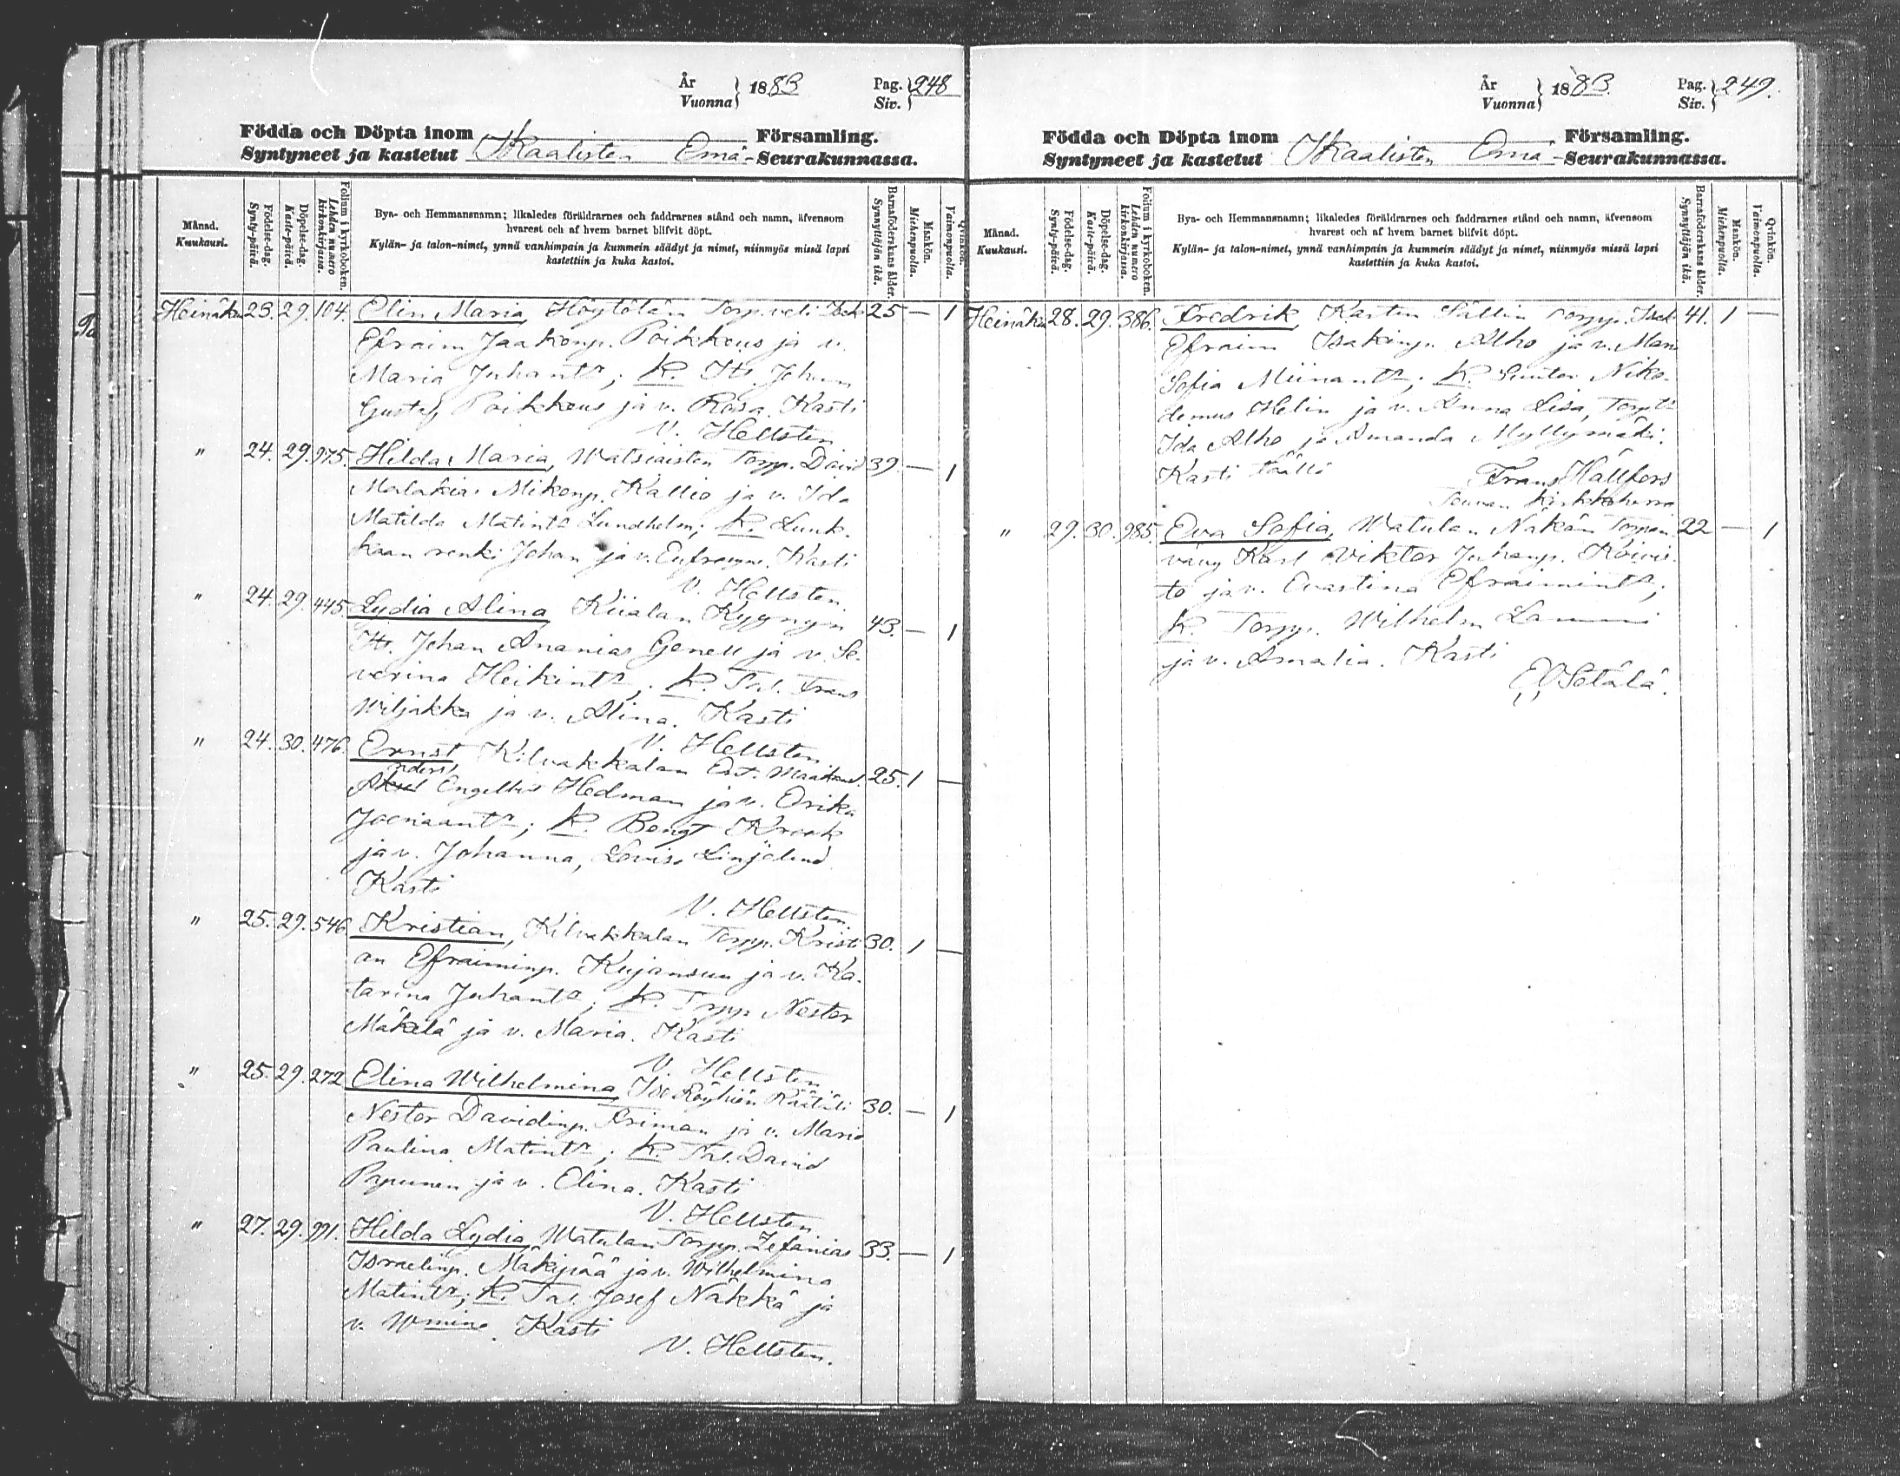 År
Vuonna} 1883
Pag.
Siv.} 248
Födda och Döpta inom Församling.
Syntyneet ja kastetut Ikaalisten Emä-Seurakunnassa.
Månad.
Kuukausi.
Födelse-dag.
Synty-päivä.
Döpelse-dag.
Kaste-päivä.
Folium i kyrkoboken.
Lehden numero kirkonkirjassa.
Bya- och Hemmansnamn; likaledes föräldrarnes och faddrarnes stånd och namn, äfvensom
hvarest och af hvem barnet blifvit döpt.
Kylän- ja talon-nimet, ynnä vanhimpain ja kummein säädyt ja nimet, niinmyös missä lapsi
kastettiin ja kuka kastoi.
Barnaföderskans ålder.
Synnyttäjän ikä.
Mankön.
Miehenpuolia.
Qvinkön.
Vaimonpuolia.
Heinäku 23. 29. 104. Elin Maria, Höytölän 25 — 1
Efraim Jaakonp. Poikkeus ja v.
Maria Juhant.; K. Its. Johan
Gustaf Poikkeus ja v. Rosa. Kasti
V. Hellsten.
" 24. 29. 975. Hilda Maria, Watsiaisten Torpp. David 39. — 1
Malakias Mikonp. Kallio ja v. Ida
Matilda Matint. Lundholm; K. Luuk-
kaan renki Johan ja v. Eufrosyne. Kasti
V. Hellsten.
" 24. 29. 445. Lydia Alina, Kiialan Kyynyn 43. — 1
Its. Johan Ananias Genell ja v. Se-
verina Heikint.; K. Tal. Frans
Wiljakka ja v. Alina. Kasti
V. Hellsten.
" 24. 30. 476. Ernst Kilvakkalan Ent. Maakaup. 25. 1 —
Engelbr. Hedman ja v. Erika
Joonaant.; K. Bengt Krook
ja v. Johanna, Lovisa
Kasti
V. Hellsten.
" 25. 29. 546. Kristian, Kilvakkalan Torpp. Kristi 30. 1 —
an Efraiminp. Kujansuu ja v. Ka-
tarina Juhant.; K. Torpp. Nestor
Mäkelä ja v. Maria. Kasti
V. Hellsten.
" 25. 29. 272. Elina Wilhelmina, Iso Röyhiön Räätäli 30. — 1
Nestor Davidinp. Friman ja v. Maria
Paulina Matint.; K. Tal. David
Papunen ja v. Elina. Kasti
V. Hellsten
" 27. 29. 991. Hilda Lydia, Watulan Torpp. Zefanias 33. — 1
Israelinp. Mäkipää ja v. Wilhelmina
Matint.; K. Tal. Josef Näkkä ja
v. Wmina. Kasti
V. Hellsten.
År
Vuonna} 1883.
Pag.
Siv.} 249.
Födda och Döpta inom Församling.
Syntyneet ja kastetut Ikaalisten Emä-Seurakunnassa.
Månad.
Kuukausi.
Födelse-dag.
Synty-päivä.
Döpelse-dag.
Kaste-päivä.
Folium i kyrkoboken.
Lehden numero kirkonkirjassa.
Bya- och Hemmansnamn; likaledes föräldrarnes och faddrarnes stånd och namn, äfvensom
hvarest och af hvem barnet blifvit döpt.
Kylän- ja talon-nimet, ynnä vanhimpain ja kummein säädyt ja nimet, niinmyös missä lapsi
kastettiin ja kuka kastoi.
Barnaföderskans ålder.
Synnyttäjän ikä.
Mankön.
Miehenpuolia.
Qvinkön.
Vaimonpuolia.
Heinäku 28. 29. 386. Fredrik, Kartun Sällin Torpp. Isak 41. 1 —
Efraim Isakinp. Alho ja v. Maria
Sofia Miinant.; K. Suutar. Niko-
demus Helin ja v. Anna Lisa,
Ida Alho ja Amanda Myllymäki.
Kasti täällä
Frans Hällfors
Kirkkoherra
" 29. 30. 985. Eva Sofia, Watulan Näkän Torpan 22 — 1
vävy Karl Viktor Juhanp. Koivis-
to ja v. Evastina Efraimint.;
K. Torpp. Wilhelm Lammi
ja v. Amalia. Kasti
Setälä.